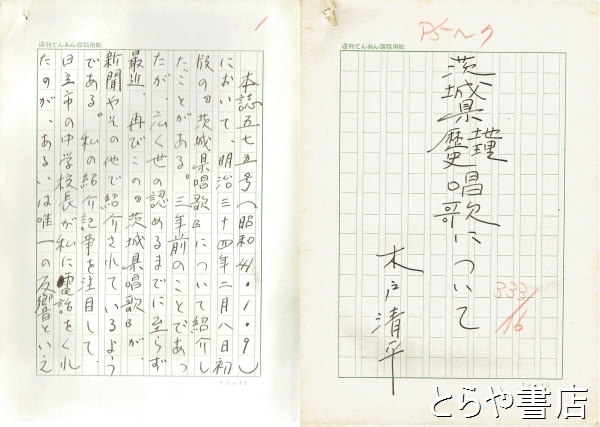 P5〜7
週刊てんおん原稿用紙
茨城県地理歴史唱歌について
木戸清平
333/16
12×15
1
週刊てんおん原稿用紙
本誌五七五号(昭和41・1・9)
において、明治三十四年二月八日初
版の『茨城県唱歌』について紹介し
たことがある。三年前のことであっ
たが、広く世の認めるまでに至らず
最近、再びこの『茨城県唱歌』が、
新聞やその他で紹介されているよう
である。私の紹介記事を注目して、
日立市の中学校長が私に電話をくれ
たのが、あるいは唯一の反響といえ
12×15
とらや書店